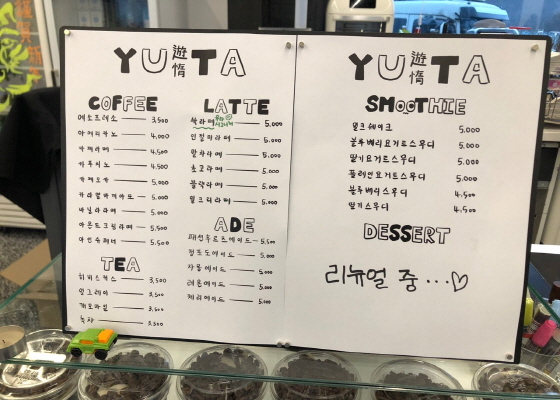 YU遊惰TA
COFFEE
에스프레소 3,500
아메리카노 4,000
카페라떼 4,500
카푸치노 4,500
카페모카 5,000
카라멜마끼아또 5,000
바닐라라떼 5,000
아몬드크림라떼 5,500
아인슈페너 5,500
TEA
히비스커스 3,500
얼그레이 3,500
캐모마일 3,500
녹차 3,500
LATTE
쑥라떼 5,000
인절미라떼 5,000
말차라떼 5,000
초코라떼 5,000
블랙라떼 5,000
밀크티라떼 5,000
ADE
패션후르츠에이드 5,500
청포도에이드 5,000
자몽에이드 5,000
레몬에이드 5,000
체리에이드 5,000
YU遊惰TA
SMOOTHIE
밀크쉐이크 5,000
블루베리요거트스무디 5,000
딸기요거트스무디 5,000
플레인요거트스무디 5,000
블루베리스무디 4,500
딸기스무디 4,500
DESSERT
리뉴얼 중...♡